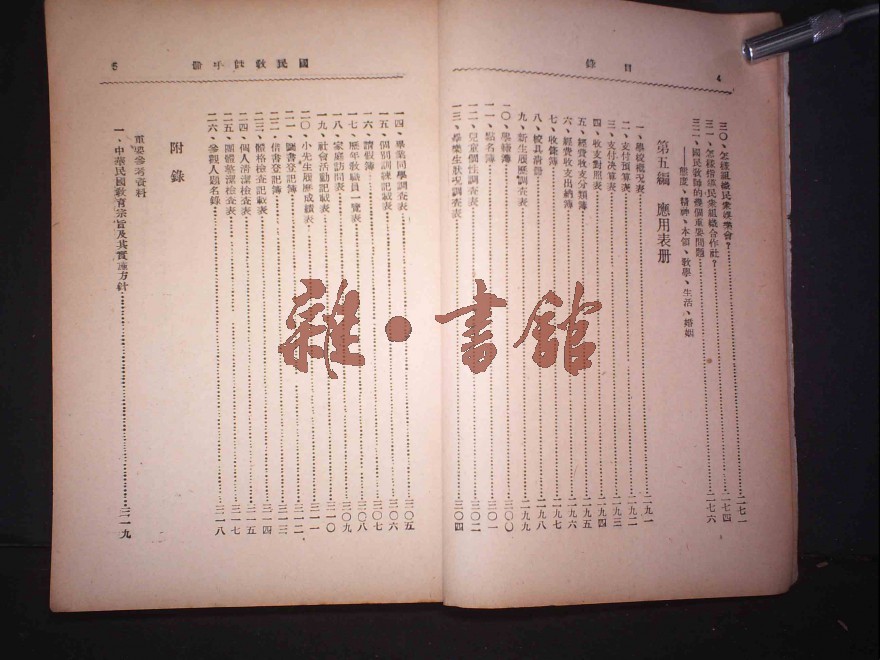 目錄
4
三〇、怎樣組織民衆娛樂會？……二七一
三一、怎樣指導民衆組織合作社？……二七四
三二、國民教師的幾個重要問題……二七六
——態度、精神、本領、教學、生活、婚姻
第五編 應用表册
一、學校概況表……二九一
二、支付預算表……二九二
三、支付決算表……二九三
四、收支對照表……二九四
五、經費收支分類簿……二九五
六、經費收支出納簿……二九六
七、收條簿……二九七
八、校具清册……二九八
九、新生履歷調查表……二九九
一〇、學籍簿……三〇〇
一一、點名簿……三〇一
一二、兒童個性調查表……三〇二
一三、學業生狀況調查表……三〇四
國民教師手册
5
一四、畢業同學調查表……三〇五
一五、個別訓練記載表……三〇六
一六、請假簿……三〇七
一七、歷年教職員一覽表……三〇八
一八、家庭訪問表……三〇九
一九、社會活動記載表……三一〇
二〇、小先生履歷成績表……三一一
二一、圖書登記簿……三一二
二二、借書登記簿……三一三
二三、體格檢查記載表……三一四
二四、個人清潔檢查表……三一五
二五、團體整潔檢查表……三一七
二六、參觀人題名錄……三一八
附錄
重要參考資料
一、中華民國教育宗旨及其實施方針……三一九
雜·書館